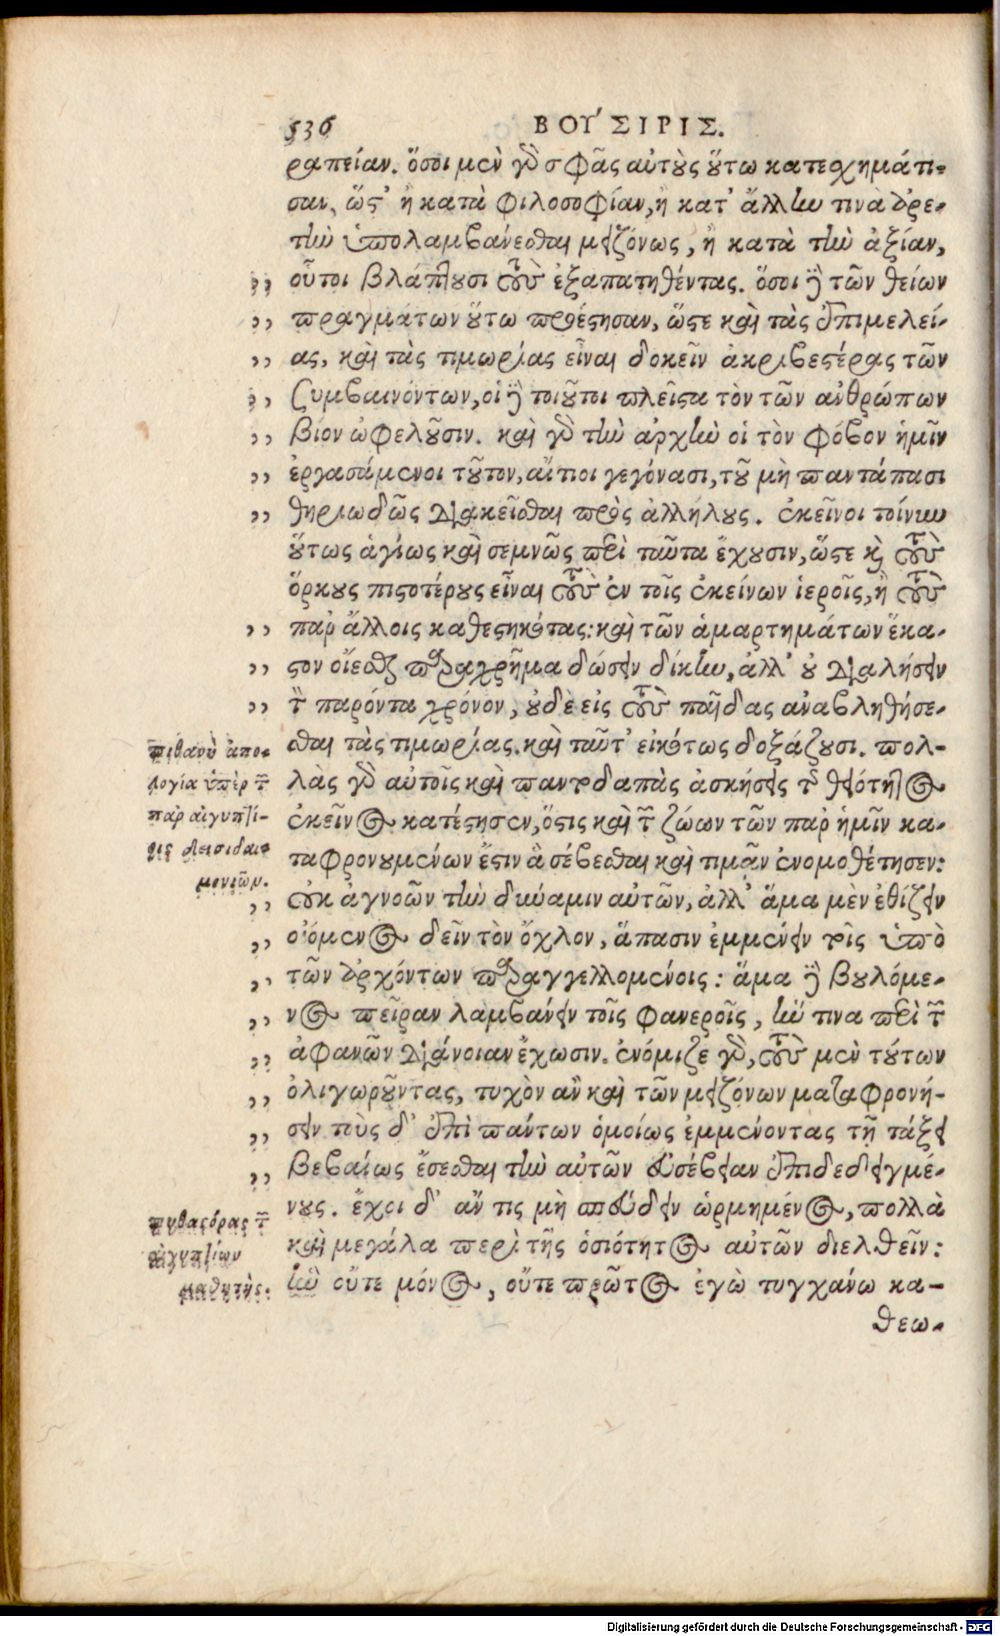 536 ΒΟΥ´ΣΙΡΙΣ.
ραπείαν. ὅσοι μὲν γὸ σφᾶς αὐτοὺς οὕτω κατεσχημάτι-
σαν, ὥς' ἢ κατὰ φιλοσοφίαν, ἢ κατ' ἄλλην τινὰ ἀρε-
τὴν ὑπολαμβάνεσθαι μειζόνως, ἢ κατὰ τὴν ἀξίαν,
,, οὗτοι βλάπτουσι τοὺς ἐξαπατηθέντας. ὅσοι δὲ τῶν θείων
,, πραγμάτων οὕτω προέστησαν, ὥστε καὶ τὰς ἐπιμελεί-
,, ας, καὶ τὰς τιμωρίας εἶναι δοκεῖν ἀκριβεστέρας τῶν
,, συμβαινόντων, οἱ δὲ τοιοῦτοι πλεῖστα τὸν τῶν ἀνθρώπων
,, βίον ὠφελοῦσιν. καὶ γὸ τὴν ἀρχὴν οἱ τὸν φόβον ἡμῖν
,, ἐργασάμενοι τοῦτον, αἴτιοι γεγόνασι, τοῦ μὴ παντάπασι
,, θηριωδῶς διακεῖσθαι πρὸς ἀλλήλους. ἐκεῖνοι τοίνυν
οὕτως ἁγίως καὶ σεμνῶς περὶ ταῦτα ἔχουσιν, ὥστε καὶ τοὺς
ὅρκους πιστοτέρους εἶναι τοὺς ἐν τοῖς ἐκείνων ἱεροῖς, ἢ τοὺς
,, παρ' ἄλλοις καθεστηκότας: καὶ τῶν ἁμαρτημάτων ἕκα-
,, στον οἴεσθαι παραχρῆμα δώσειν δίκην, ἀλλ' οὐ διαλήσειν
,, τὸν παρόντα χρόνον, οὐδὲ εἰς τοὺς παῖδας ἀναβληθήσε-
σθαι τὰς τιμωρίας. καὶ ταῦτ' εἰκότως δοξάζουσι. πολ-
λὰς γὸ αὐτοῖς καὶ παντοδαπὰς ἀσκήσεις τῆς θειότητος
ἐκεῖνος κατέστησεν, ὅστις καὶ τῶν ζώων τῶν παρ' ἡμῖν κα-
ταφρονουμένων ἔστιν ἃ σέβεσθαι καὶ τιμᾶν ἐνομοθέτησεν:
,, οὐκ ἀγνοῶν τὴν δύναμιν αὐτῶν, ἀλλ' ἅμα μὲν ἐθίζειν
,, οἰόμενος δεῖν τὸν ὄχλον, ἅπασιν ἐμμένειν τοῖς ὑπὸ
,, τῶν ἀρχόντων παραγγελλομένοις: ἅμα δὲ βουλόμε-
,, νος πεῖραν λαμβάνειν τοῖς φανεροῖς, ἥν τινα περὶ τῶν
,, ἀφανῶν διάνοιαν ἔχωσιν. ἐνόμιζε γὸ, τοὺς μὲν τούτων
,, ὀλιγωροῦντας, τυχὸν ἂν καὶ τῶν μειζόνων καταφρονή-
,, σειν τοὺς δ' ἐπὶ πάντων ὁμοίως ἐμμένοντας τῇ τάξει
,, βεβαίως ἔσεσθαι τὴν αὐτῶν εὐσέβειαν ἐπιδεδειγμέ-
νους. ἔχοι δ' ἄν τις μὴ σπεύδειν ὡρμημένος, πολλὰ
καὶ μεγάλα περὶ τῆς ὁσιότητος αὐτῶν διελθεῖν:
ἣν οὔτε μόνος, οὔτε πρῶτος ἐγὼ τυγχάνω κα-
θεω-
πιθανὴ ἀπο-
λογία ὑπὲρ τῶν
παρ' αἰγυπτί-
οις δεισιδαι-
μονιῶν.
πυθαγόρας τῶν
αἰγυπτίων
μαθητής.
Digitalisierung gefördert durch die Deutsche Forschungsgemeinschaft - DFG